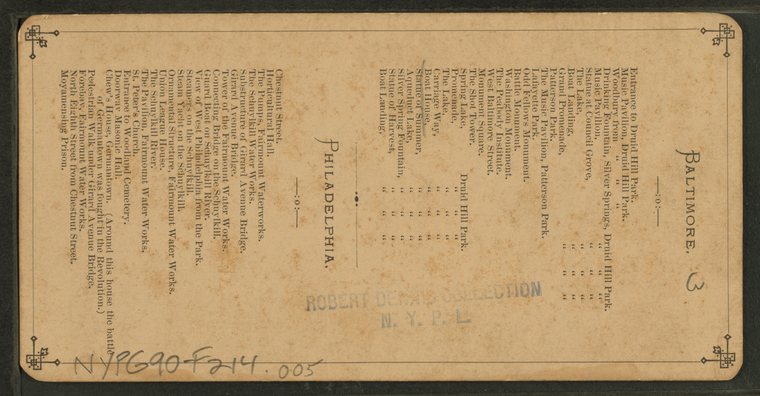 BALTIMORE. 3
—:o:—
Entrance to Druid Hill Park.
Music Pavilion, Druid Hill Park.
Woodbury from " " "
Drinking Fountain, Silver Springs, Druid Hill Park.
Music Pavilion, " " "
Statue at Council Grove, " " "
The Lake, " " "
Boat Landing, " " "
Grand Promenade, " " "
Patterson Park.
The Music Pavilion, Patterson Park.
Lafayette Park.
Odd Fellows Monument.
Battle Monument.
Washington Monument.
The Peabody Institute.
West Baltimore Street.
Monument Square.
The Shot Tower.
Spring Lake, Druid Hill Park.
Promenade, " " "
The Lake, " " "
Carriage Way, " " "
Boat House, " " "
Statue of Summer, " " "
Aquarium, " " "
Silver Spring Fountain, " " "
Statue of Harvest, " " "
Boat Landing, " " "
PHILADELPHIA.
—:o:—
Chestnut Street.
Horticultural Hall.
The Pumps, Fairmount Waterworks.
The Schuylkill Water Works.
Substructure of Girard Avenue Bridge.
Girard Avenue Bridge.
Tower of the Fairmount Water Works.
Connecting Bridge on the Schuylkill.
Guard Boat on Schuylkill River.
View of West Philadelphia from the Park.
Steamers on the Schuylkill.
Steam Yacht on the Schuylkill
Ornamental Statuary, Fairmount Water Works.
Union League House.
The Schuylkill River.
The Pavilion, Fairmount Water Works.
St. Peter's Church.
Entrance to Woodland Cemetery.
Doorway Masonic Hall.
Chew's House, Germantown. (Around this house the battle
of Germantown was fought in the Revolution.)
Pedestrian Walk under Girard Avenue Bridge.
Forebay, Fairmount Water Works.
North Eighth Street from Chestnut Street.
Moyamensing Prison.
ROBERT DENNIS COLLECTION
N. Y. P. L.
NYPG90-F214 .005